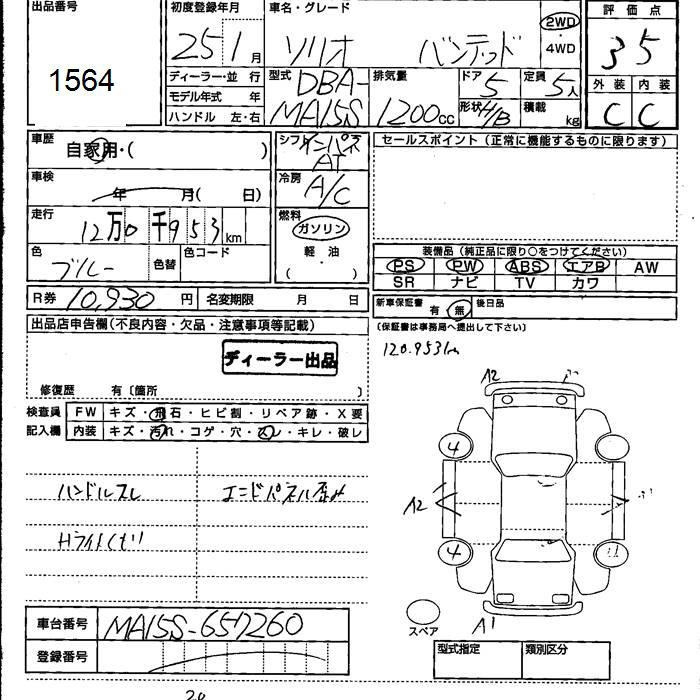 出品番号
1564
初度登録年月
25 1 月
車名・グレード
ソリオ バンデッド
2WD
・
4WD
評価点
3.5
外装 内装
C C
ディーラー・並 行
モデル年式 年
ハンドル 左・右
型式
DBA-
MA15S
排気量
1200cc
ドア 5
形状 H/B
定員 5人
積載 kg
車歴
自家用・( )
車検
年 月( 日)
走行
12万0千953km
色 ブルー 色替 色コード
シフト インパネ
AT
冷房
A/C
燃料
ガソリン
軽 油
( )
セールスポイント(正常に機能するものに限ります)
装備品(純正品に限り○をつけてください)
PS PW ABS エアB AW
SR ナビ TV カワ
R券 10,930 円 名変期限 月 日
新車保証書 有 無 後日品
(保証書は事務局へ提出して下さい)
120.953km
出品店申告欄(不良内容・欠品・注意事項等記載)
ディーラー出品
修復歴 有〔箇所 〕
検査員 FW キズ・飛石・ヒビ割・リペア跡・X要
記入欄 内装 キズ・汚れ・コゲ・穴・スレ・キレ・破レ
ハンドルスレ エンドパネル歪み
Hライトくもり
A2
4
A2
4
A1
スペア
車台番号 MA15S-657260
登録番号
型式指定 類別区分